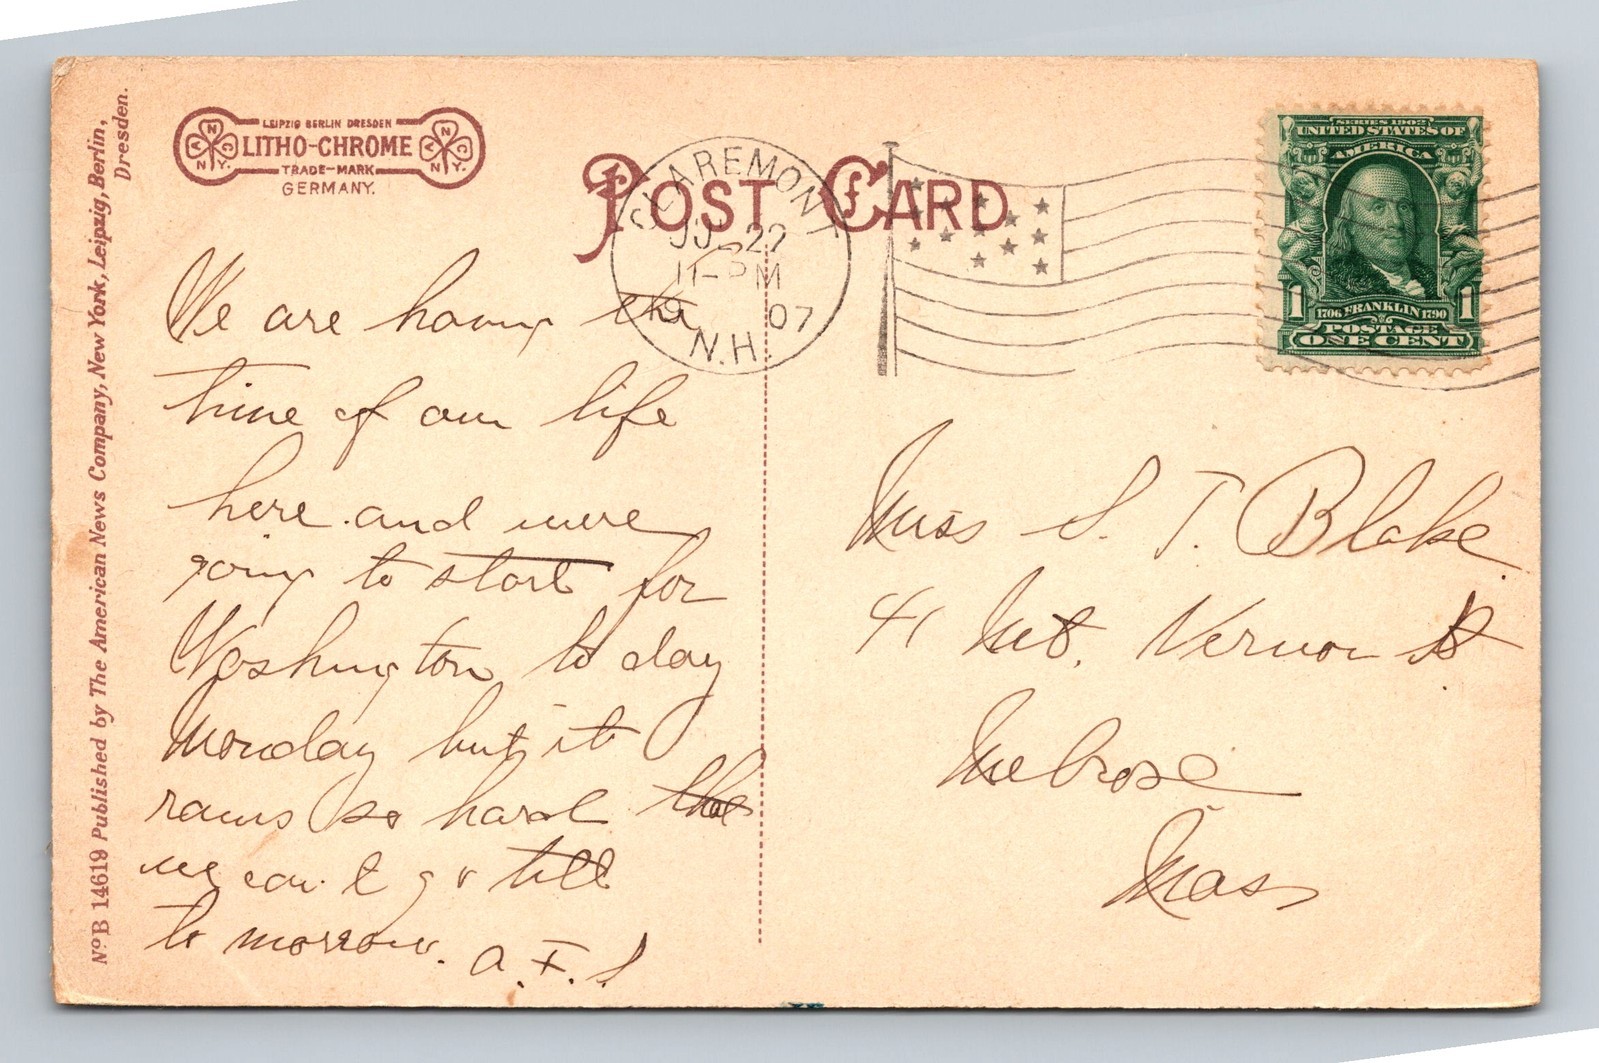 LEIPZIG BERLIN DRESDEN
LITHO-CHROME
TRADE-MARK
GERMANY.
POST CARD
CLAREMONT
JUL 22
11-PM
19 07
N.H.
SERIES 1902
UNITED STATES OF
AMERICA
1 1706 FRANKLIN 1790 1
POSTAGE
ONE CENT
We are having the
time of our life
here and were
going to start for
Washington to day
Monday but it
rains so hard that
we can't go till
to morrow. A. F. S
Miss S. T. Blake.
41 Mt. Vernon St
Melrose
Mass
No. B 14619 Published by The American News Company, New York, Leipzig, Berlin,
Dresden.